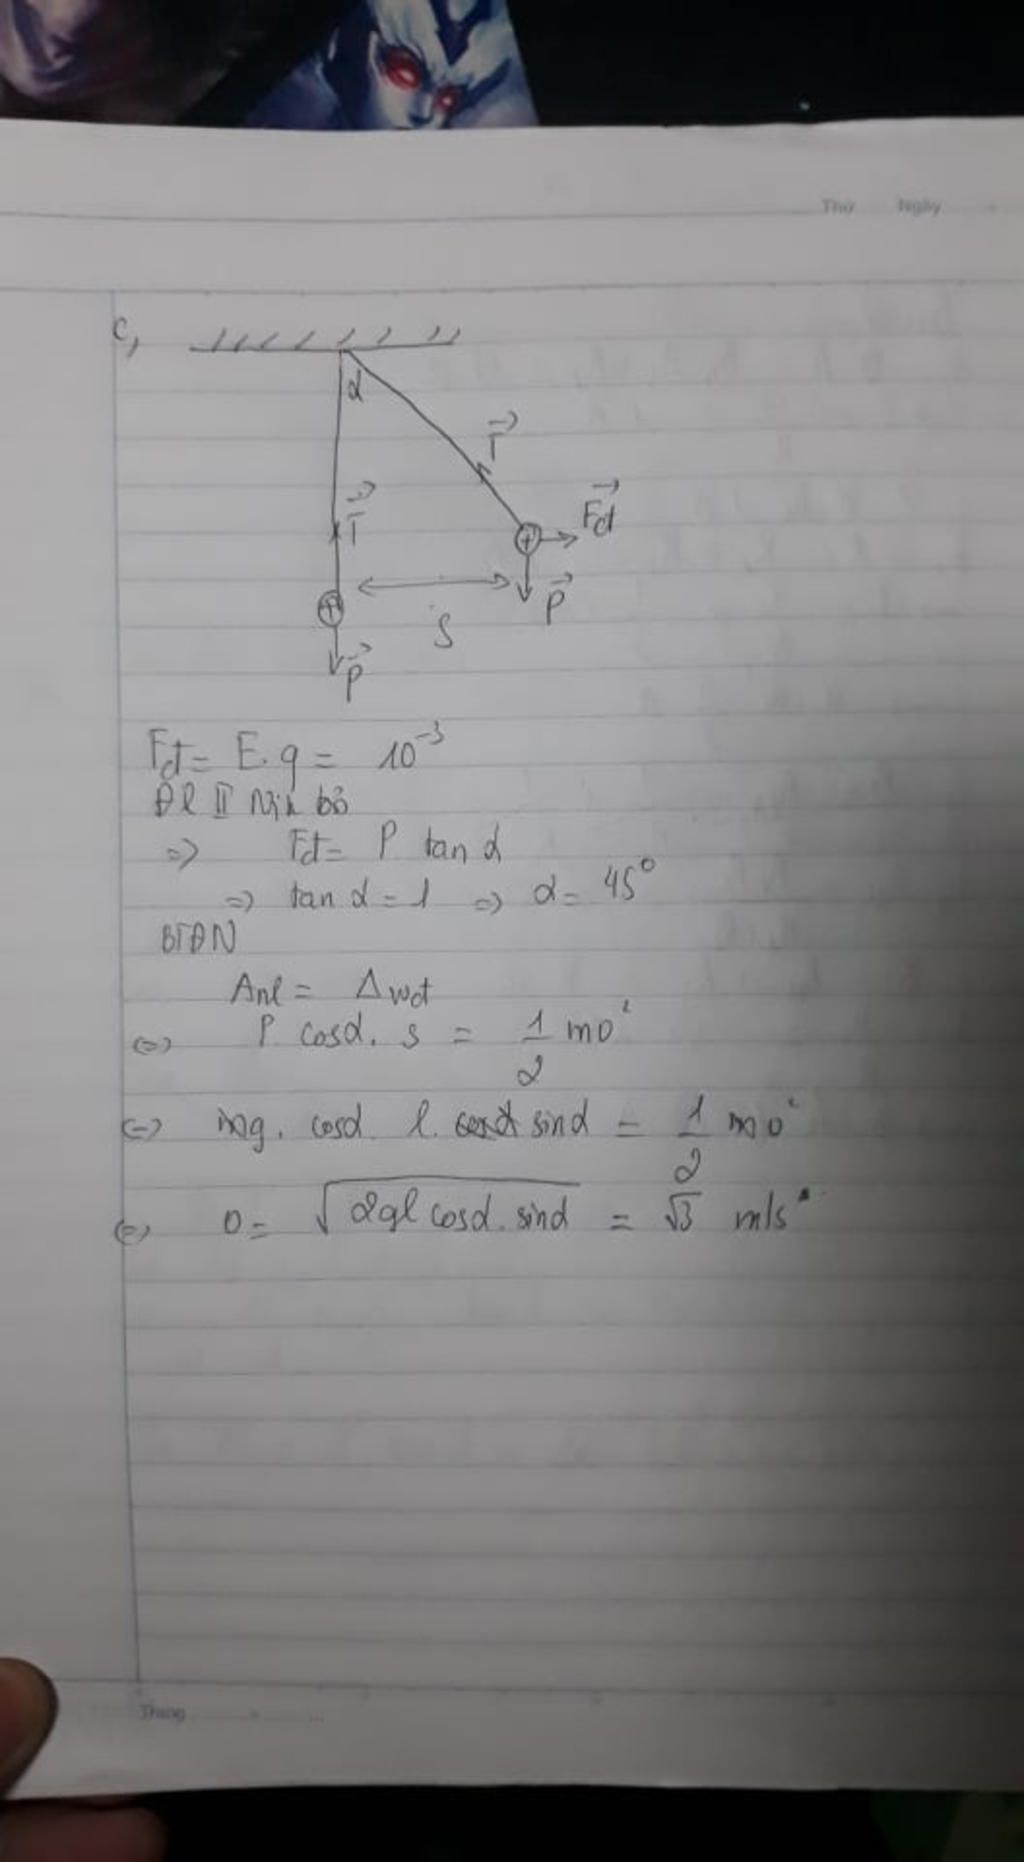 Thứ Ngày
c,
α
T
T
Fđ
P
S
P
Fđ = E.q = 10⁻³
ĐL II Niu bơ
=> Fđ = P tan α
=> tan α = 1 => α = 45°
BTĐN
Anl = Δwđ
<=> P cosα. s = 1/2 mv²
<=> mg. cosα. l. sinα = 1/2 mv²
<=> v = √2gl cosα. sinα = √3 m/s
Tháng